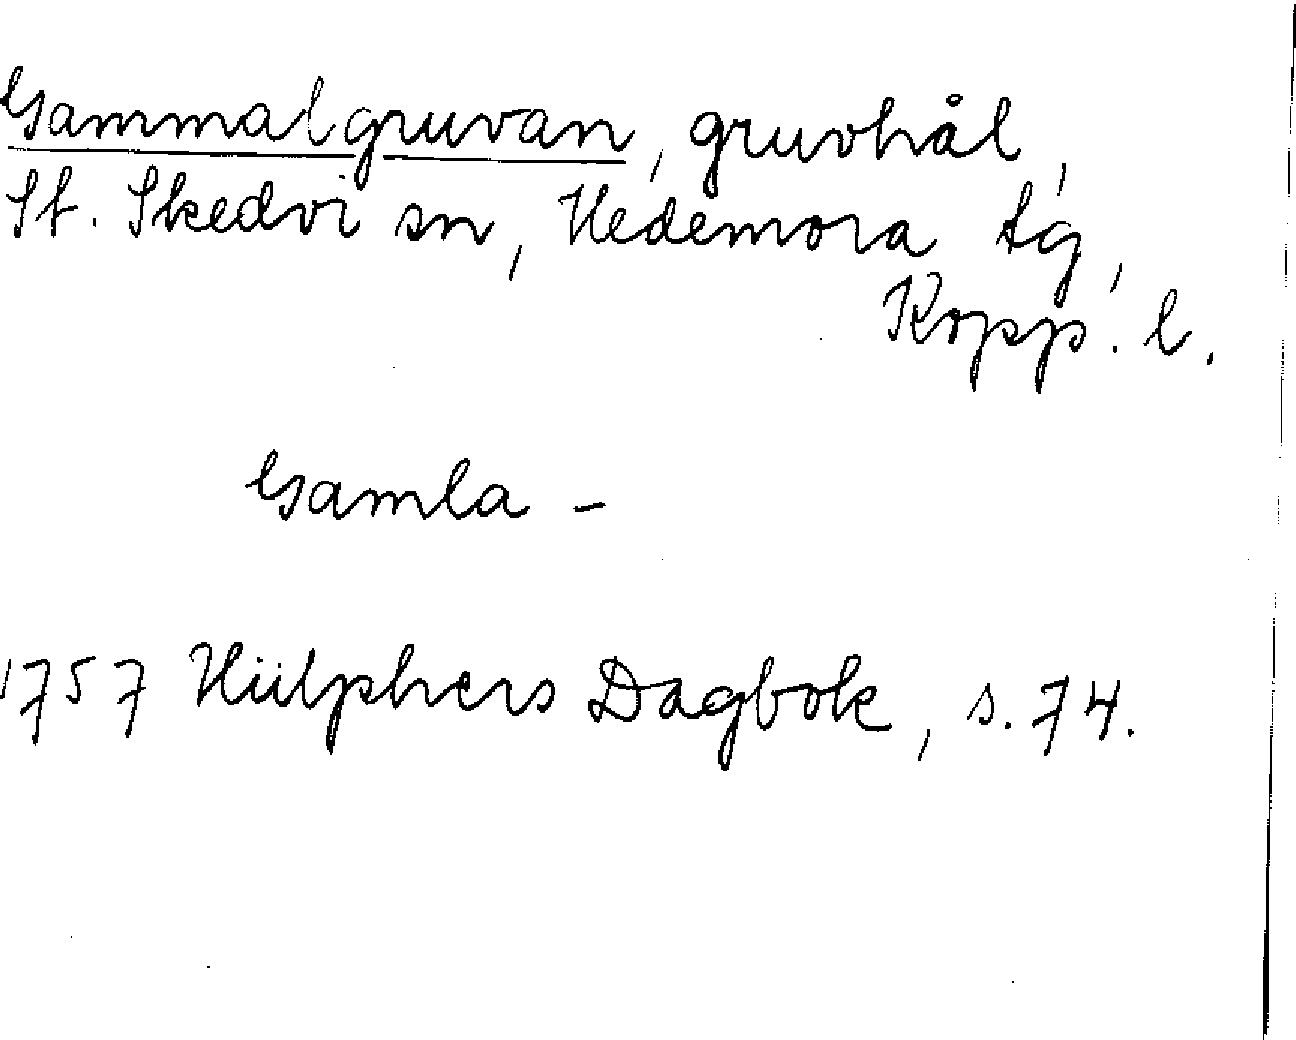 Gammalgruvan, gruvhål,
St. Skedvi sn, Hedemora tg,
Kopp. l.
Gamla -
1757 Hülphers Dagbok, s. 74.